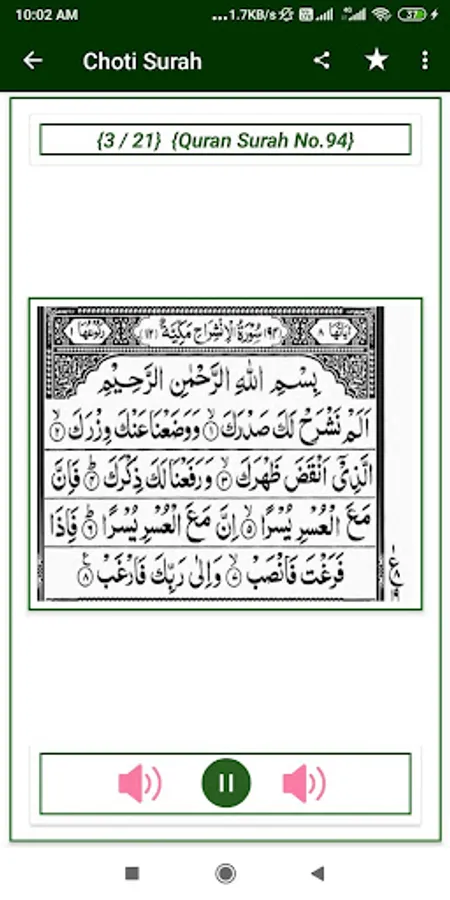 10:02 AM ...1.7KB/s 37
Choti Surah
{3 / 21} {Quran Surah No.94}
اٰیَاتُهَا ٨ ﴿٩٤﴾ سُوْرَةُ الْاِنْشِرَاحِ مَكِّیَّةٌ ﴿١٢﴾ رُكُوْعُهَا ١
بِسْمِ اللّٰهِ الرَّحْمٰنِ الرَّحِیْمِ
اَلَمْ نَشْرَحْ لَكَ صَدْرَكَ ۙ﴿١﴾ وَوَضَعْنَا عَنْكَ وِزْرَكَ ۙ﴿٢﴾
الَّذِیْۤ اَنْقَضَ ظَهْرَكَ ۙ﴿٣﴾ وَرَفَعْنَا لَكَ ذِكْرَكَ ؕ﴿٤﴾ فَاِنَّ
مَعَ الْعُسْرِ یُسْرًا ۙ﴿٥﴾ اِنَّ مَعَ الْعُسْرِ یُسْرًا ؕ﴿٦﴾ فَاِذَا
فَرَغْتَ فَانْصَبْ ۙ﴿٧﴾ وَاِلٰی رَبِّكَ فَارْغَبْ ﴿٨﴾